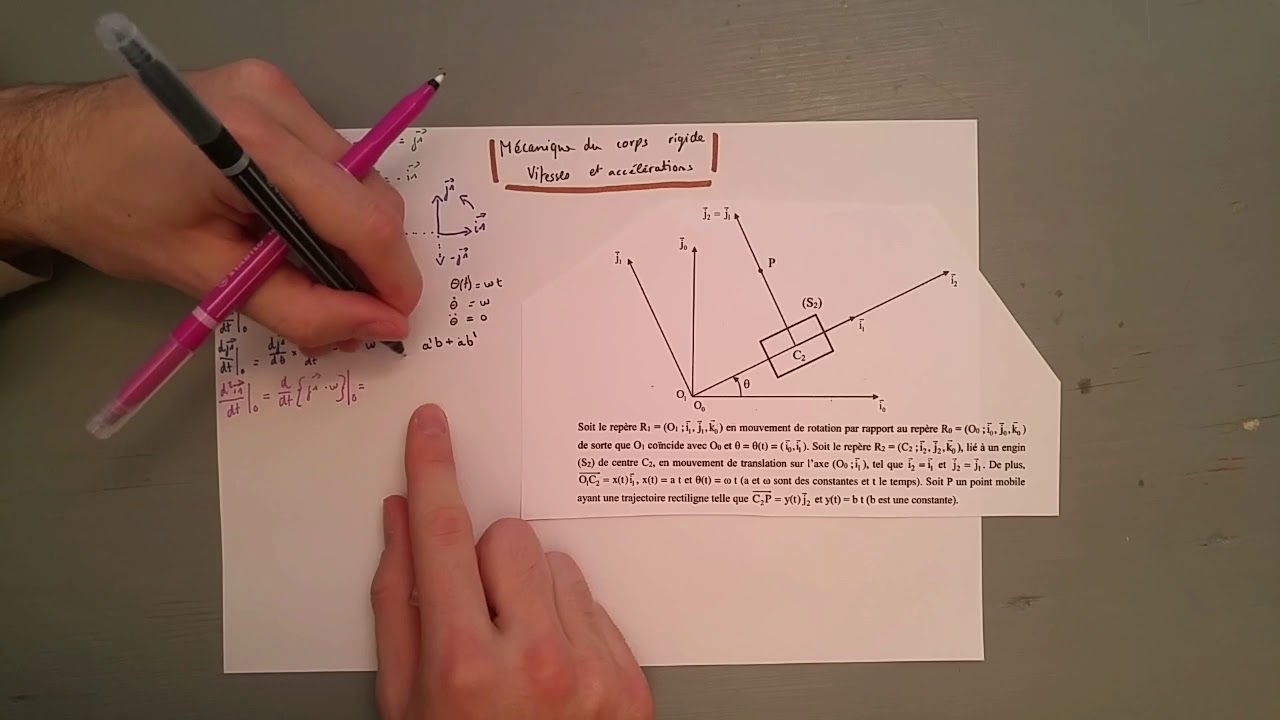 Mécanique du corps rigide
Vitesses et accélérations
= j⃗1
= - i⃗1
j⃗1
i⃗1
- j⃗1
θ(t) = ωt
θ̇ = ω
θ̈ = 0
a'b + ab'
dt |0
dj⃗1/dt |0 = dj⃗1/dθ × dt ω
d²i⃗1/dt |0 = d/dt {j⃗1 · ω} |0 =
j⃗2 = j⃗1
j⃗0
j⃗1
P
i⃗2
(S2)
i⃗1
C2
θ
O1
O0
i⃗0
Soit le repère R1 = (O1 ; i⃗1, j⃗1, k⃗0) en mouvement de rotation par rapport au repère R0 = (O0 ; i⃗0, j⃗0, k⃗0)
de sorte que O1 coïncide avec O0 et θ = θ(t) = (i⃗0, i⃗1). Soit le repère R2 = (C2 ; i⃗2, j⃗2, k⃗0), lié à un engin
(S2) de centre C2, en mouvement de translation sur l'axe (O0 ; i⃗1), tel que i⃗2 = i⃗1 et j⃗2 = j⃗1. De plus,
O1C2 = x(t) i⃗1, x(t) = a t et θ(t) = ω t (a et ω sont des constantes et t le temps). Soit P un point mobile
ayant une trajectoire rectiligne telle que C2P = y(t) j⃗2 et y(t) = b t (b est une constante).